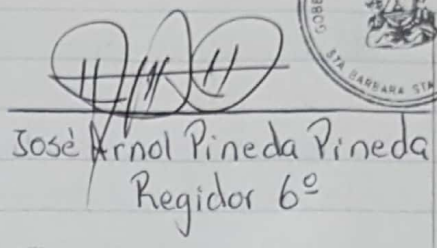 GOBE
STA BARBARA STA
José Arnol Pineda Pineda
Regidor 6º